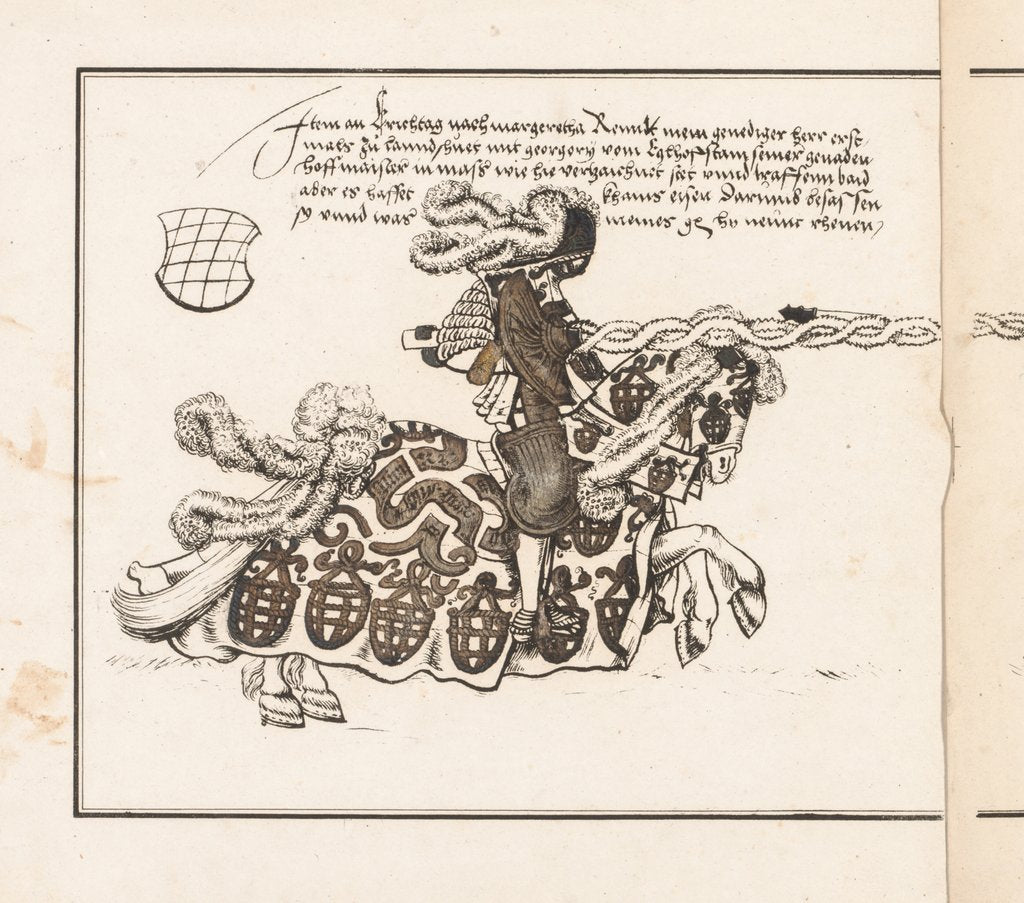 Item an Erichtag nach margeretha Rennt mein genediger herr erst
mals zu lannd/huet mit georgory vom Eglhofstain seiner genaden
hoffmaister in mass wie hie verzaichnet stet vnnd traffenn baid
aber es hafftet khains eisen Darumb besassen
sy vnnd was meines g h neunt rhenen